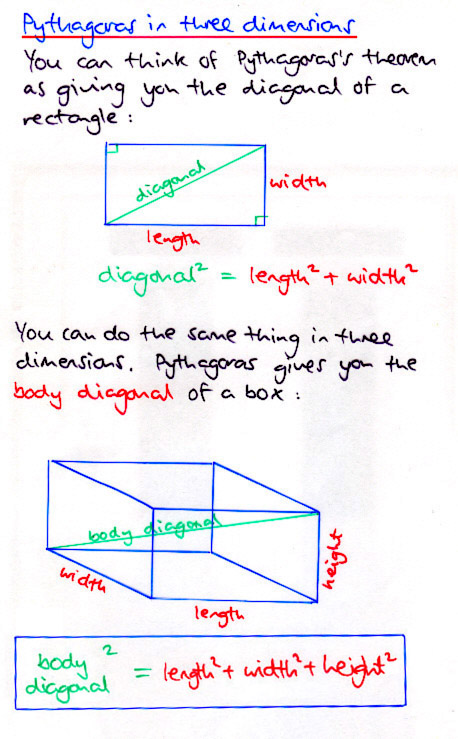 Pythagoras in three dimensions
You can think of Pythagoras's theorem
as giving you the diagonal of a
rectangle :
diagonal
width
length
diagonal² = length² + width²
You can do the same thing in three
dimensions. Pythagoras gives you the
body diagonal of a box :
body diagonal
width
height
length
body diagonal ² = length² + width² + height²